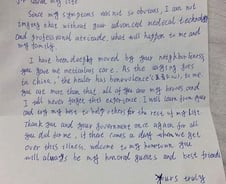 save my life
Since my symptoms are not so obvious, I can not
imagine that without your advanced medical technology
and professional attitude, what will happen to me and
my family.
I have been deeply moved by your neighborliness,
you gave me meticulous care. As the saying goes
in china, the health has benevolence to me,
you are more than that, all of you are my heroes and
I will never forget this experience. I will learn from you
and try my best to help others for the rest of my life.
Thank you and your government once again, for all
you did for me, if there comes a day when we get
over this illness, welcome to my hometown, you
will always be my honored guests and best friends
Yours truly